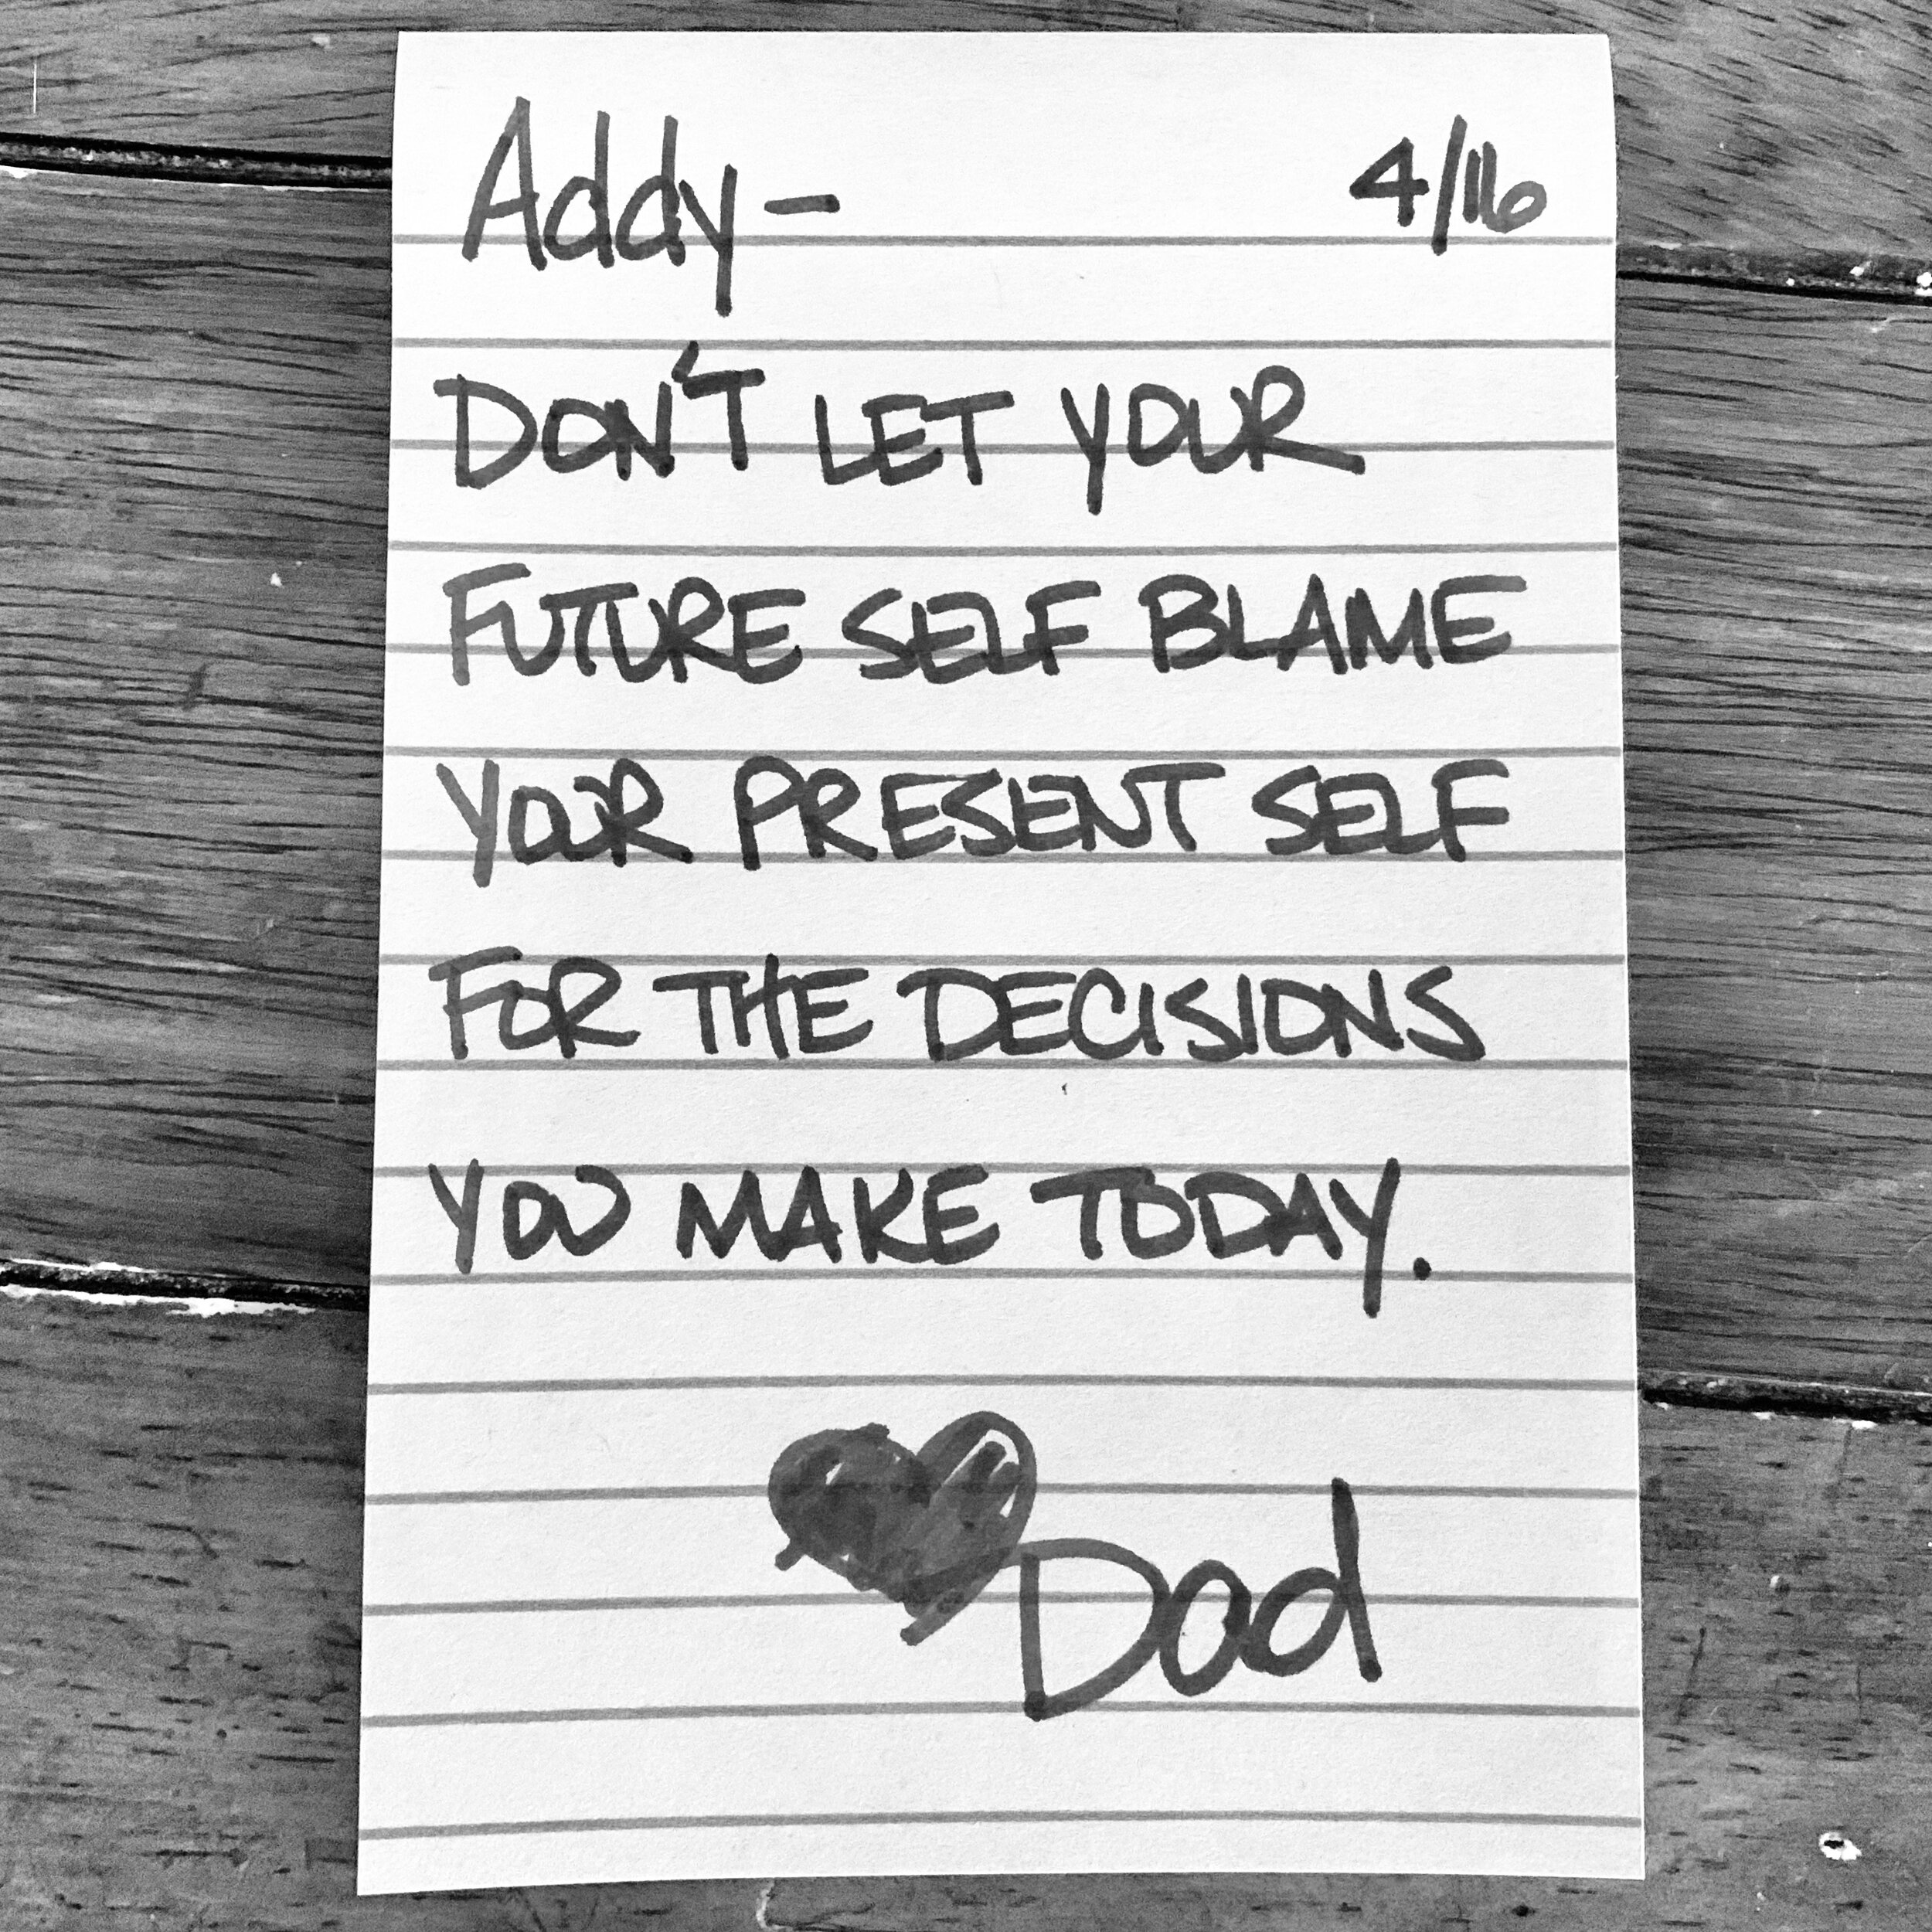 Addy - 4/16
DON'T LET YOUR
FUTURE SELF BLAME
YOUR PRESENT SELF
FOR THE DECISIONS
YOU MAKE TODAY.
Dad